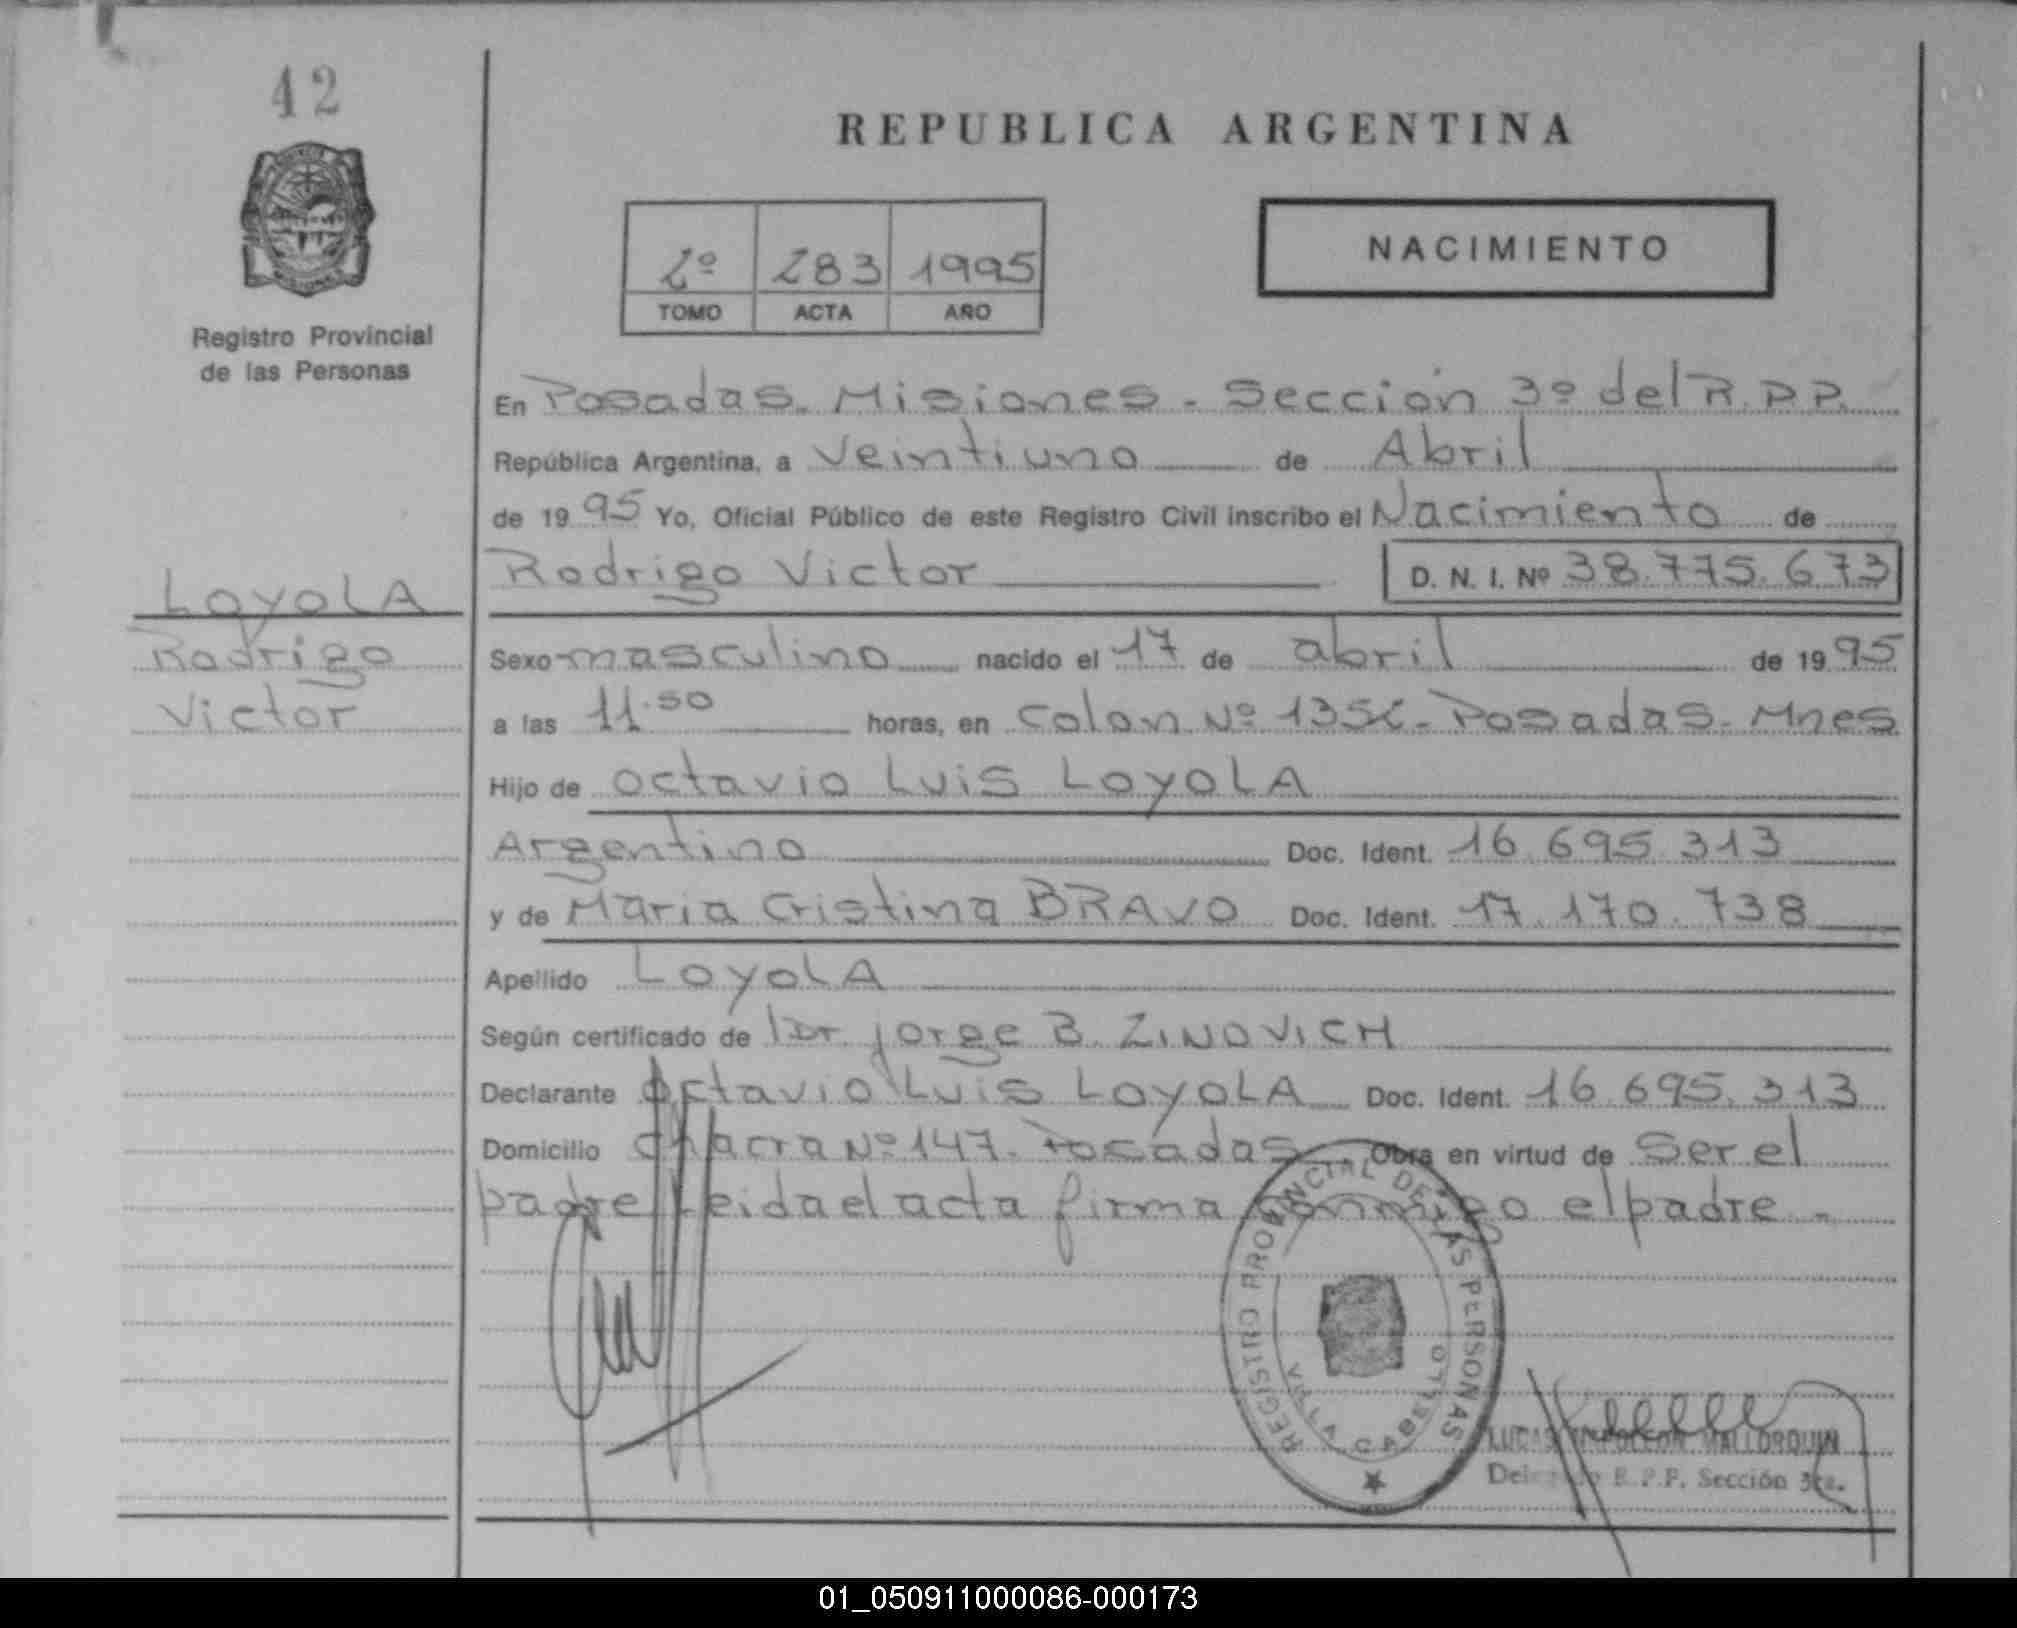 42
REPUBLICA ARGENTINA
2º 283 1995
TOMO ACTA AÑO
NACIMIENTO
Registro Provincial
de las Personas
En Posadas. Misiones - Sección 3º del R.P.P.
República Argentina, a Veintiuno de Abril
de 19 95 Yo, Oficial Público de este Registro Civil inscribo el Nacimiento de
Rodrigo Victor D. N. I. Nº 38.775.673
LoyoLA
Rodrigo
Victor
Sexo masculino nacido el 17 de abril de 19 95
a las 11.50 horas, en Colon Nº 1356 - Posadas - Mnes
Hijo de Octavio Luis LoyoLA
Argentino Doc. Ident. 16.695.313
y de Maria Cristina BRAVO Doc. Ident. 17.170.738
Apellido LoyoLA
Según certificado de Dr. Jorge B. ZINOVICH
Declarante Octavio Luis LoyoLA Doc. Ident. 16.695.313
Domicilio Chacra Nº 147. Posadas Obra en virtud de Ser el
padre Leida el acta firma conmigo el padre -
REGISTRO PROVINCIAL DE LAS PERSONAS
VILLA CABELLO
LUCAS NAPOLEON MALLORQUIN
Delegado R.P.P. Sección 3ra.
01_050911000086-000173